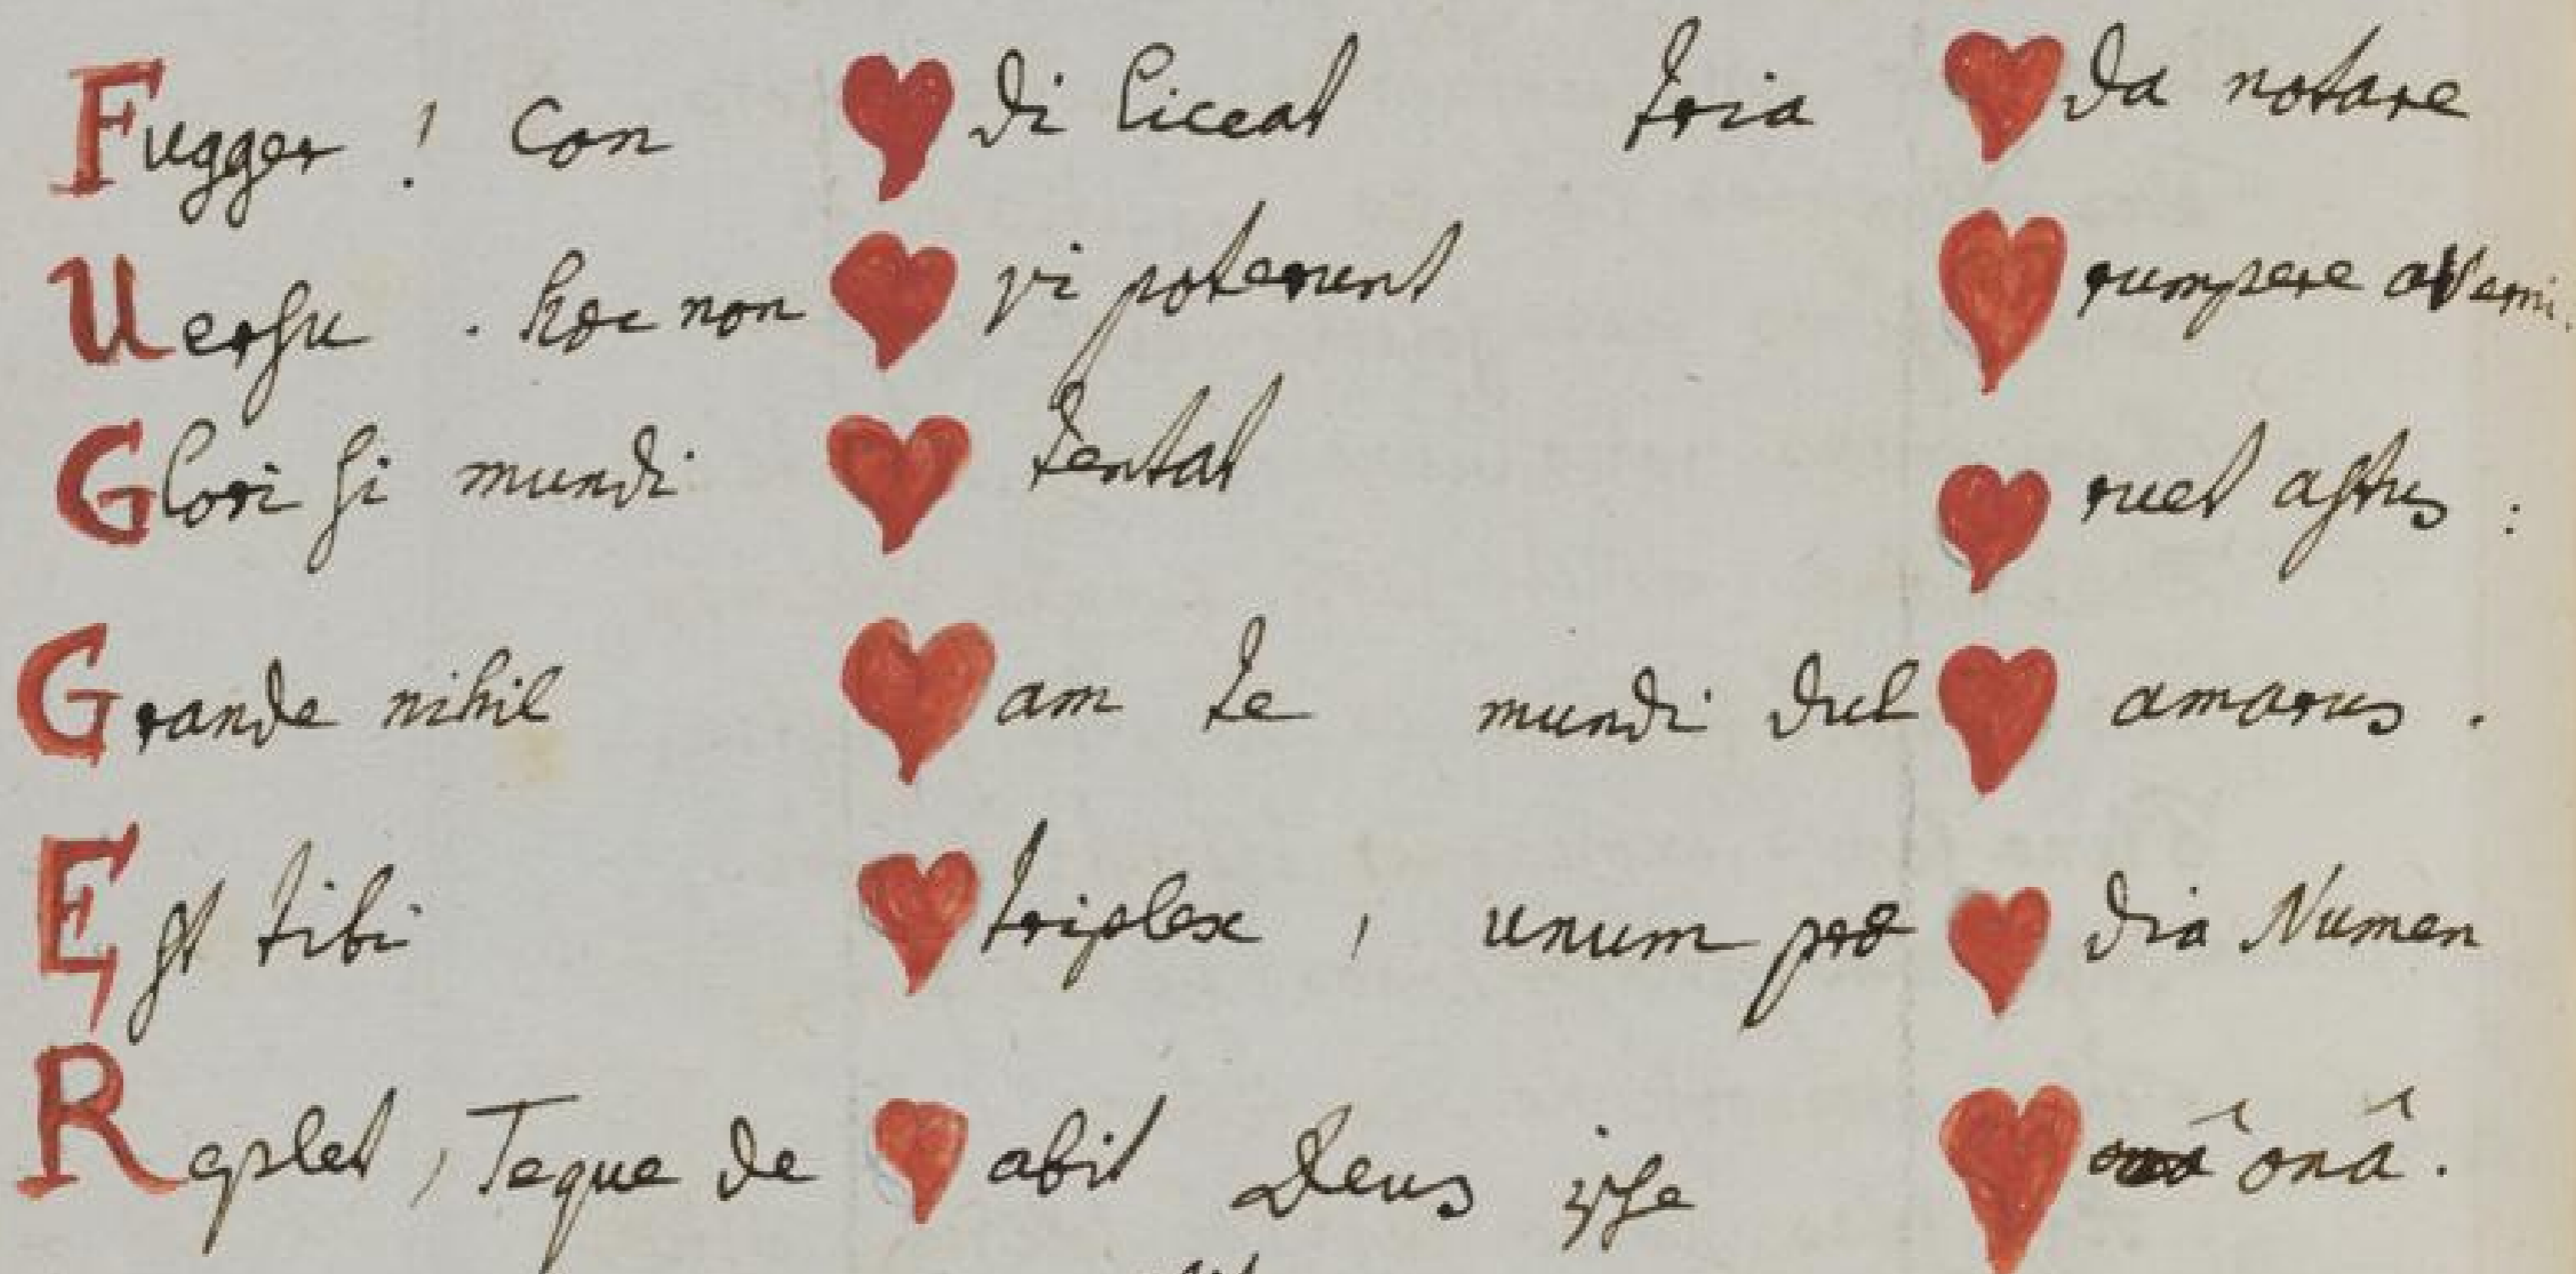 Fugger! Con ❤ di liceat tria ❤ da notare
Uersu. hoc non ❤ pi poterunt ❤ rumpere
Glori si mundi ❤ tentat ❤ ruet astus :
Grande nihil ❤ am te mundi dul ❤ amarus .
Est tibi ❤ triplex , unum pro ❤ dia Numen
Replet , Teque de ❤ abit Deus ipse ❤ onâ .